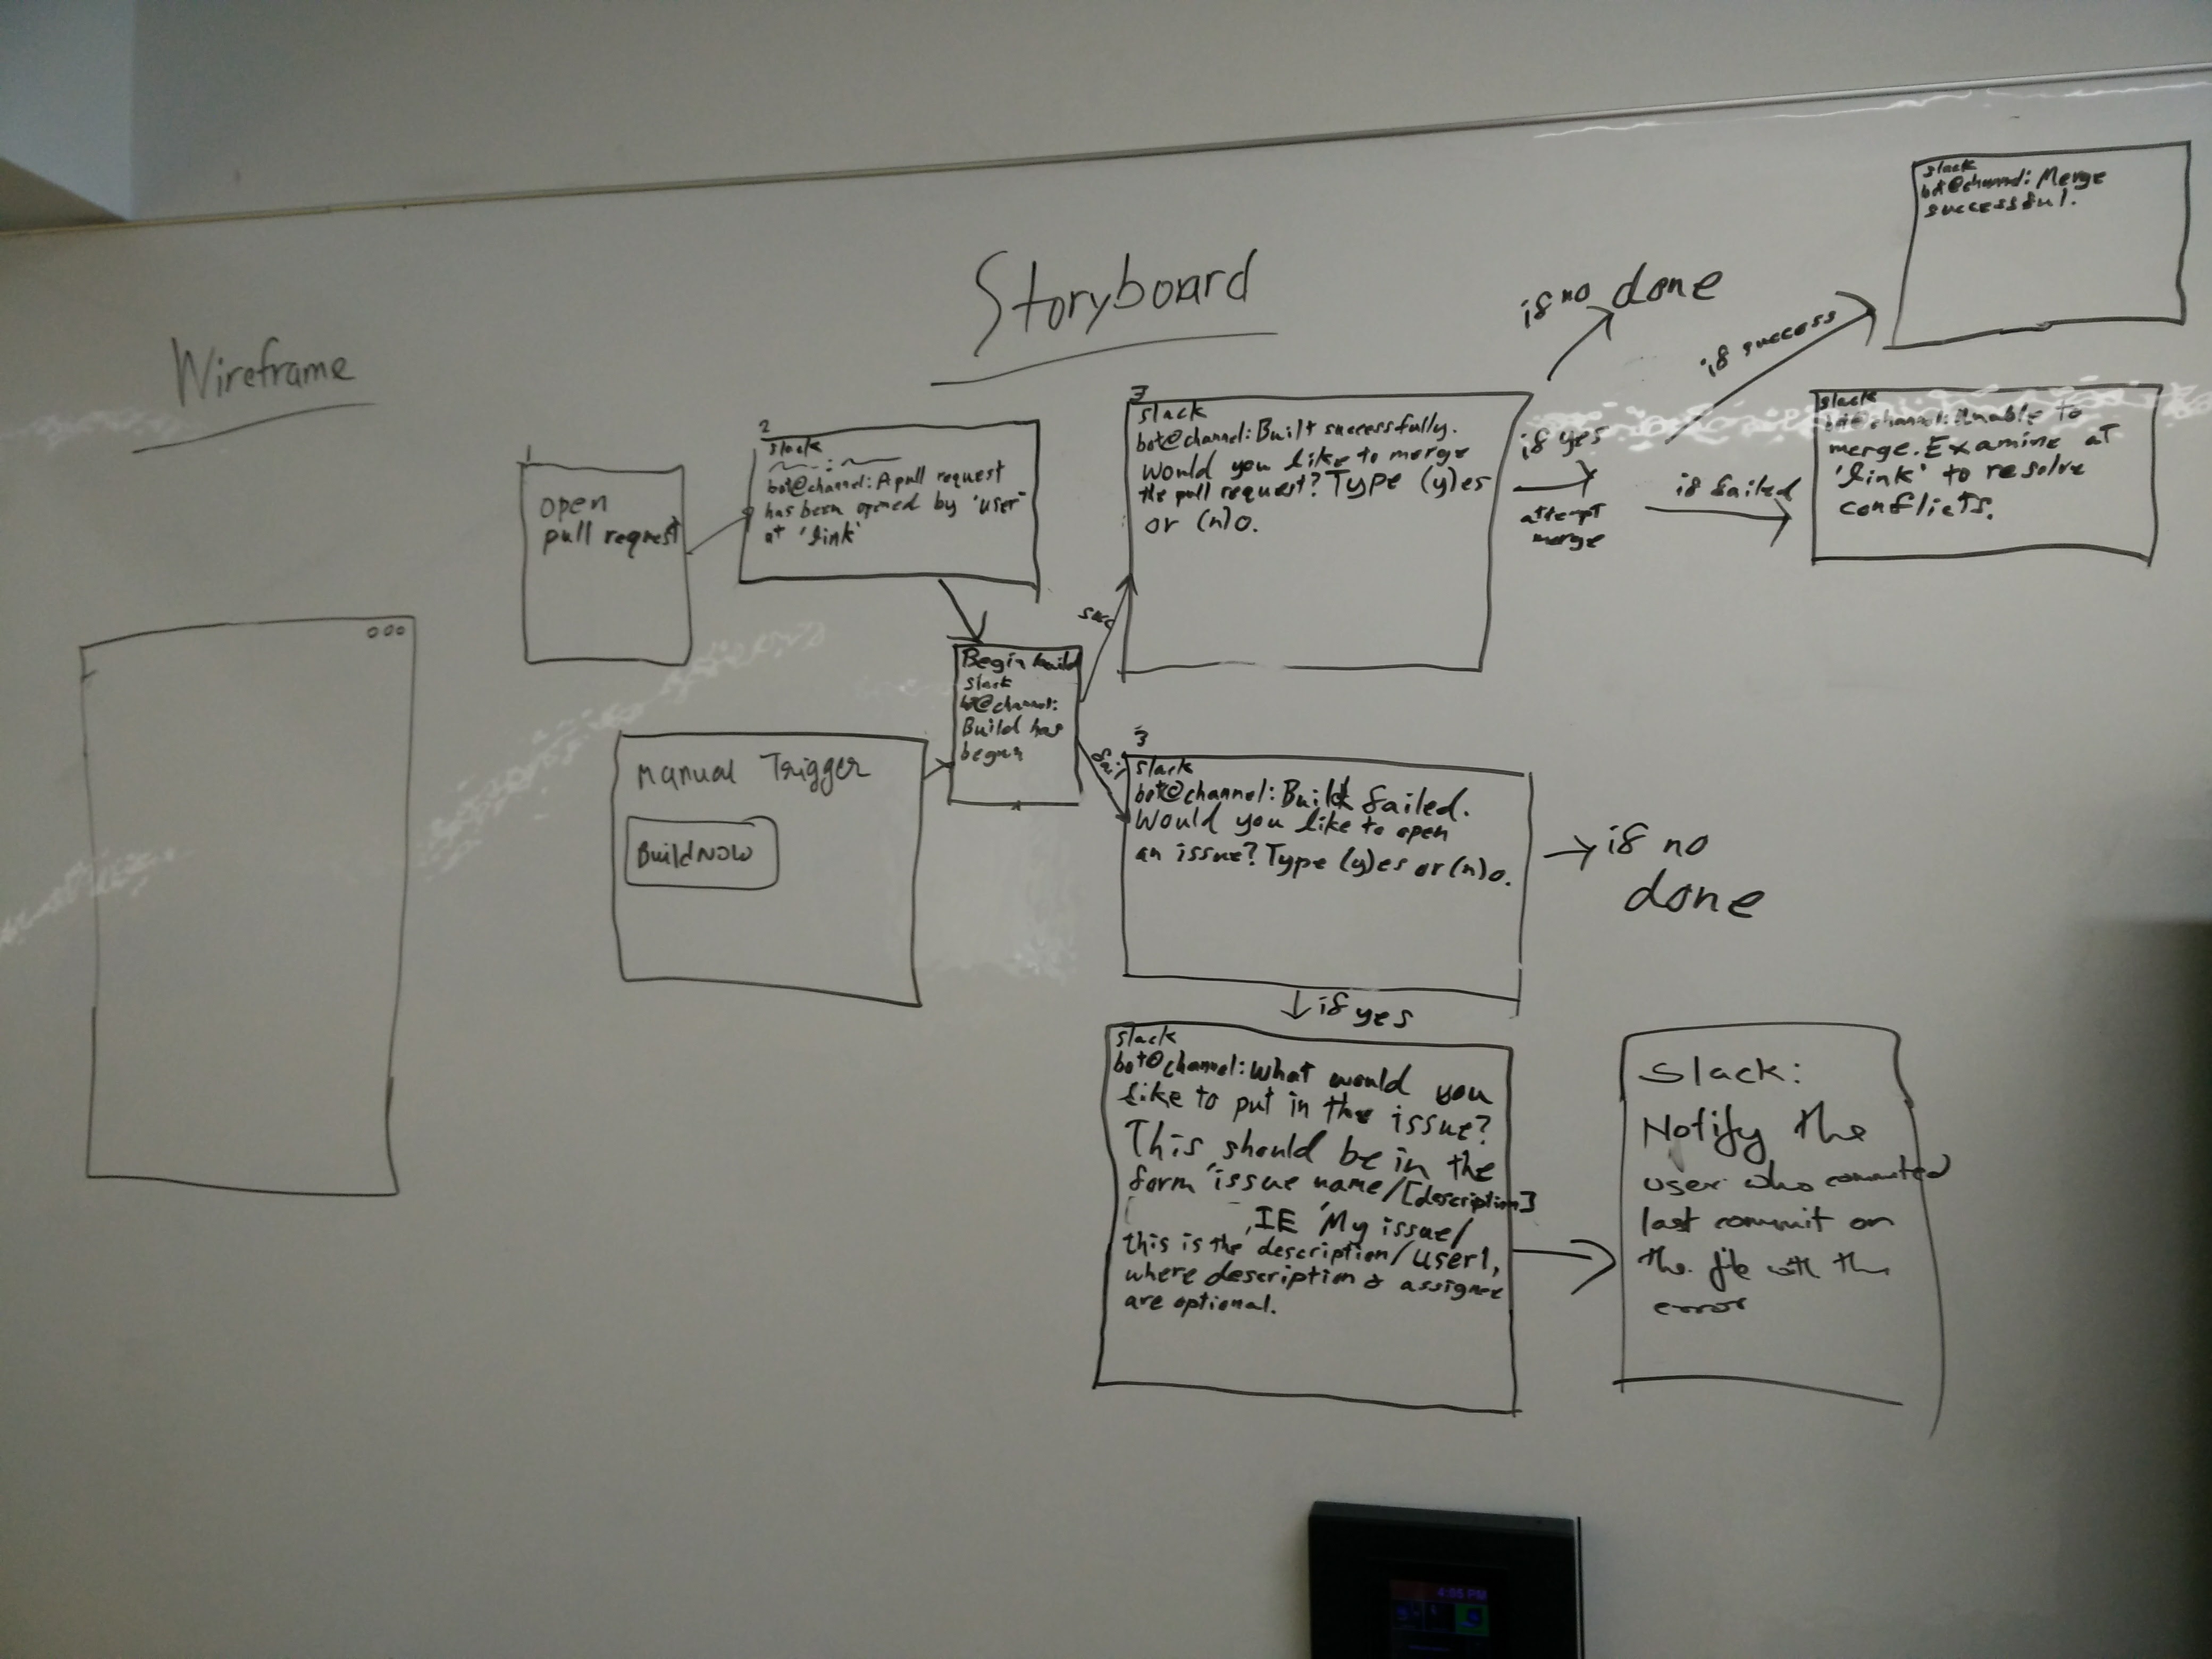 Storyboard
Wireframe
1
open
pull request
2
slack
bot@channel: A pull request
has been opened by 'user'
at 'link'
Manual Trigger
Build NOW
Begin build
slack
bot@channel:
Build has
begun
succ
fail
3
slack
bot@channel: Built successfully.
Would you like to merge
the pull request? Type (y)es
or (n)o.
if no done
if yes
attempt
merge
if success
if failed
slack
bot@channel: Merge
successful.
slack
bot@channel: Unable to
merge. Examine at
'link' to resolve
conflicts.
3
slack
bot@channel: Build failed.
Would you like to open
an issue? Type (y)es or (n)o.
if no
done
if yes
slack
bot@channel: What would you
like to put in the issue?
This should be in the
form 'issue name/[description]
, IE 'My issue/
this is the description/user1,
where description & assignee
are optional.
Slack:
Notify the
user who commited
last commit on
the file with the
error
4:05 PM